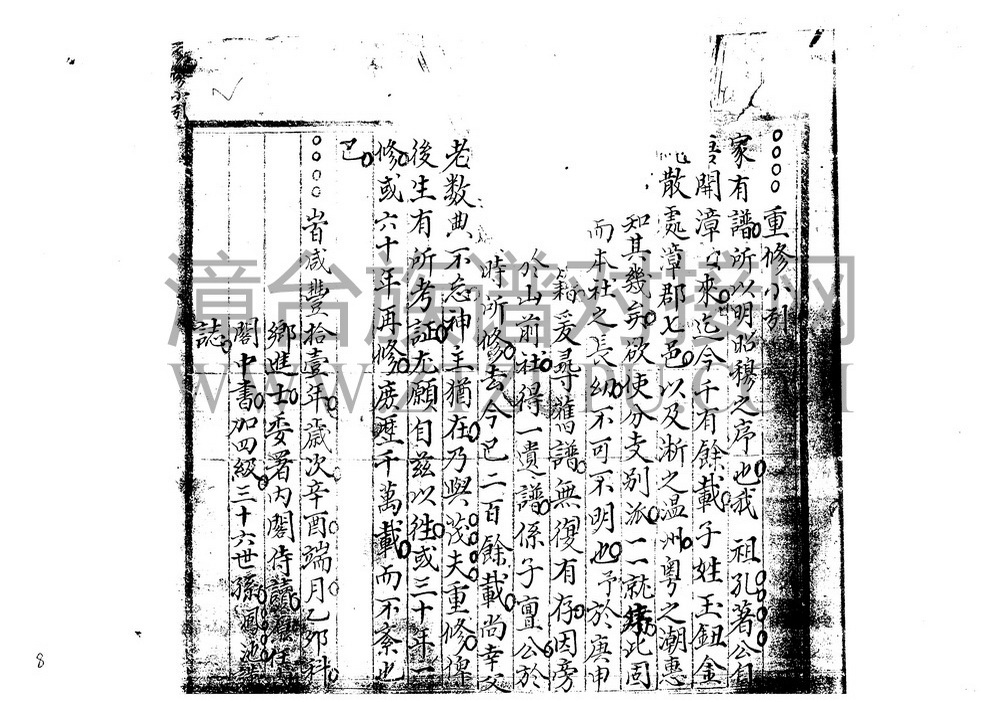 重修小引
家有譜所以明昭穆之序也我 祖孔著公自
開漳以來迄今千有餘載子姓玉鈕金
散處漳郡七邑以及浙之溫州粵之潮惠
知其幾矣欲使分支別派一一就緒此固
而本社之長幼不可不明也予於庚申
籍爰尋舊譜無復有存因旁
於山前社得一遺譜係子亶公於
時所修去今已二百餘載尚幸父
老数典不忘神主猶在乃與茂夫重修俾
後生有所考証尤願自兹以徃或三十年一
修或六十年再修庶歷千萬載而不紊也
已
旹咸豐拾壹年歲次辛酉端月乙卯科
鄉進士委署内閣侍讀
閣中書加四級三十六世孫鳳池
誌
修小引
漳台族谱对接网
WWW.ZTZUPU.COM
8